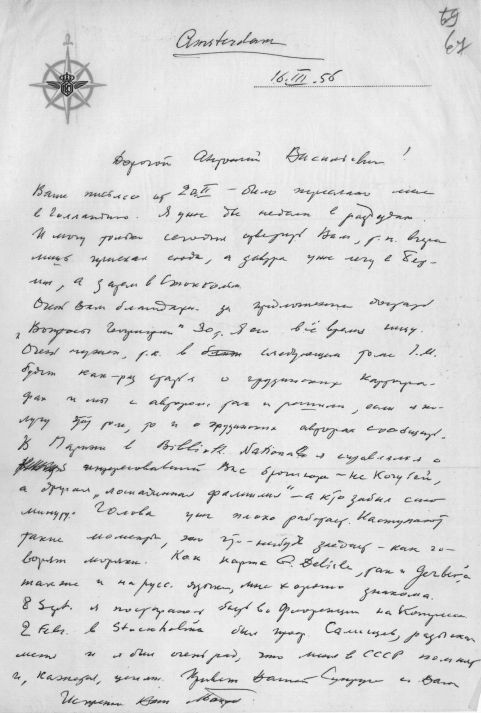 69
67
Amsterdam
16.III.56
Дорогой Антоний Васильевич!
Ваше письмо от 20.II – было переслано мне
в Голландию. Я уже две недели в разъездах.
И могу только сегодня ответить Вам, т.к. вчера
лишь приехал сюда, а завтра уже лечу в Бер-
лин, а затем в Стокгольм.
Очень Вам благодарен за предложение
„Вопросы Географии" 30, я его всё время ищу.
Очень нужен, т.к. в следующем томе I.M.
будет как-раз статья о грузинских Картогра-
фах и мы с автором так и решили, если я по-
лучу этот том, то и о грузинских авторах сообщить.
В Париже в Biblioth. Nationale я справлялся о
интересовавшей Вас брошюре – не Кочубей,
а другая „лошадинная фамилия" – а кто забыл сию
минуту. Голова уже плохо работает. Наступают
такие моменты, что что-нибудь заедает – как го-
ворят моряки. Как карта G. Delisle, так и Gerbera
также и на русс. языке, мне хорошо знакома.
8 Sept. я постараюсь быть во Флоренции на Конгрессе.
2 Febr. в Stockholm'е был проф. Салищев, разыскал
меня и я был очень рад, что меня в СССР помнят
и, кажется, ценят. Привет Вашей Супруге и Вам
Искренно Ваш